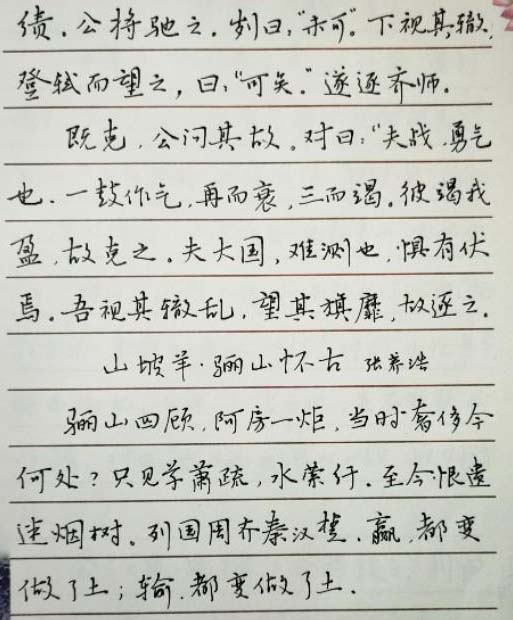 绩。公将驰之。刿曰:“未可”。下视其辙,
登轼而望之,曰:“可矣。”遂逐齐师。
既克,公问其故。对曰:“夫战,勇气
也。一鼓作气,再而衰,三而竭。彼竭我
盈,故克之。夫大国,难测也,惧有伏
焉。吾视其辙乱,望其旗靡,故逐之。
山坡羊·骊山怀古 张养浩
骊山四顾,阿房一炬,当时奢侈今
何处?只见草萧疏,水萦纡。至今恨遗
迷烟树。列国周齐秦汉楚,赢,都变
做了土;输,都变做了土。